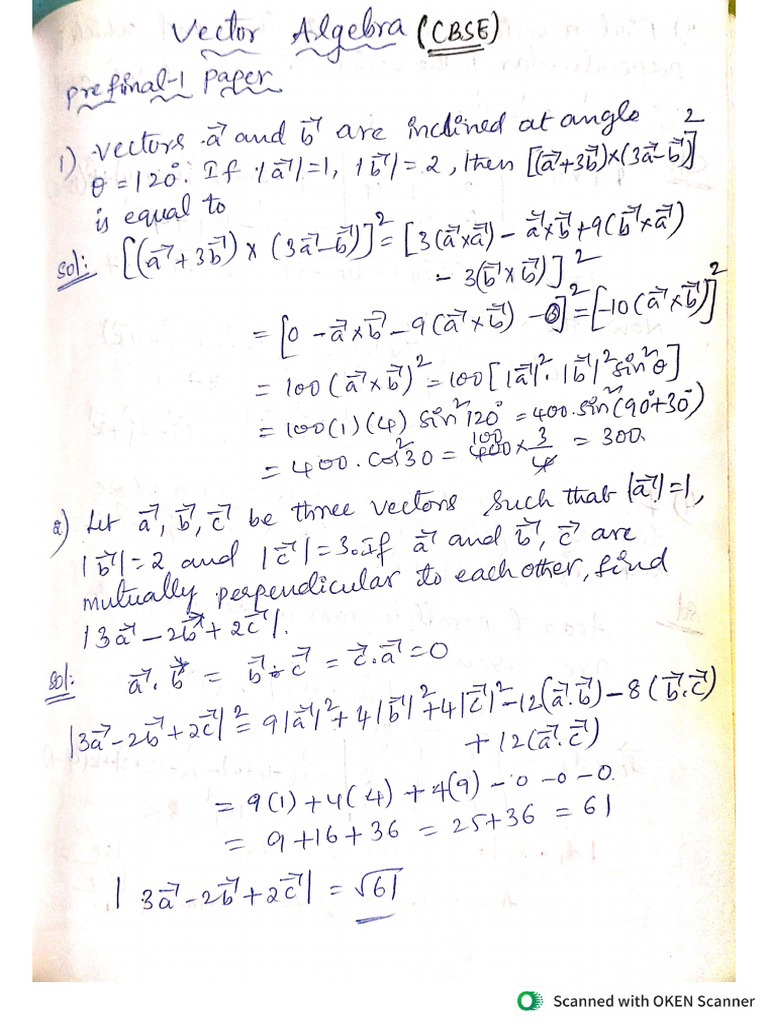 Vector Algebra (CBSE)
prefinal-1 paper
1) vectors a⃗ and b⃗ are inclined at angle
θ = 120°. If |a⃗|=1, |b⃗|=2, then [(a⃗+3b⃗)×(3a⃗-b⃗)]²
is equal to
Sol: [(a⃗+3b⃗) × (3a⃗-b⃗)]² = [3(a⃗×a⃗) - a⃗×b⃗ + 9(b⃗×a⃗)
- 3(b⃗×b⃗)]²
= [0 - a⃗×b⃗ - 9(a⃗×b⃗) - 0]² = [-10(a⃗×b⃗)]²
= 100(a⃗×b⃗)² = 100[|a⃗|²·|b⃗|² sin²θ]
= 100(1)(4) sin²120° = 400·sin²(90°+30°)
= 400·cos²30 = 400 × 3/4 = 300.
100
2) Let a⃗, b⃗, c⃗ be three vectors such that |a⃗|=1,
|b⃗|=2 and |c⃗|=3. If a⃗ and b⃗, c⃗ are
mutually perpendicular to each other, find
|3a⃗ - 2b⃗ + 2c⃗|.
Sol: a⃗·b⃗ = b⃗·c⃗ = c⃗·a⃗ = 0
|3a⃗-2b⃗+2c⃗|² = 9|a⃗|²+4|b⃗|²+4|c⃗|²-12(a⃗·b⃗)-8(b⃗·c⃗)
+ 12(a⃗·c⃗)
= 9(1)+4(4)+4(9)-0-0-0.
= 9+16+36 = 25+36 = 61
|3a⃗-2b⃗+2c⃗| = √61
Scanned with OKEN Scanner